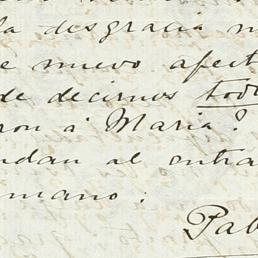 la desgracia n
e nuevo afect
de decirnos todo
ron á Maria?
ndan al entra
mano:
Pab